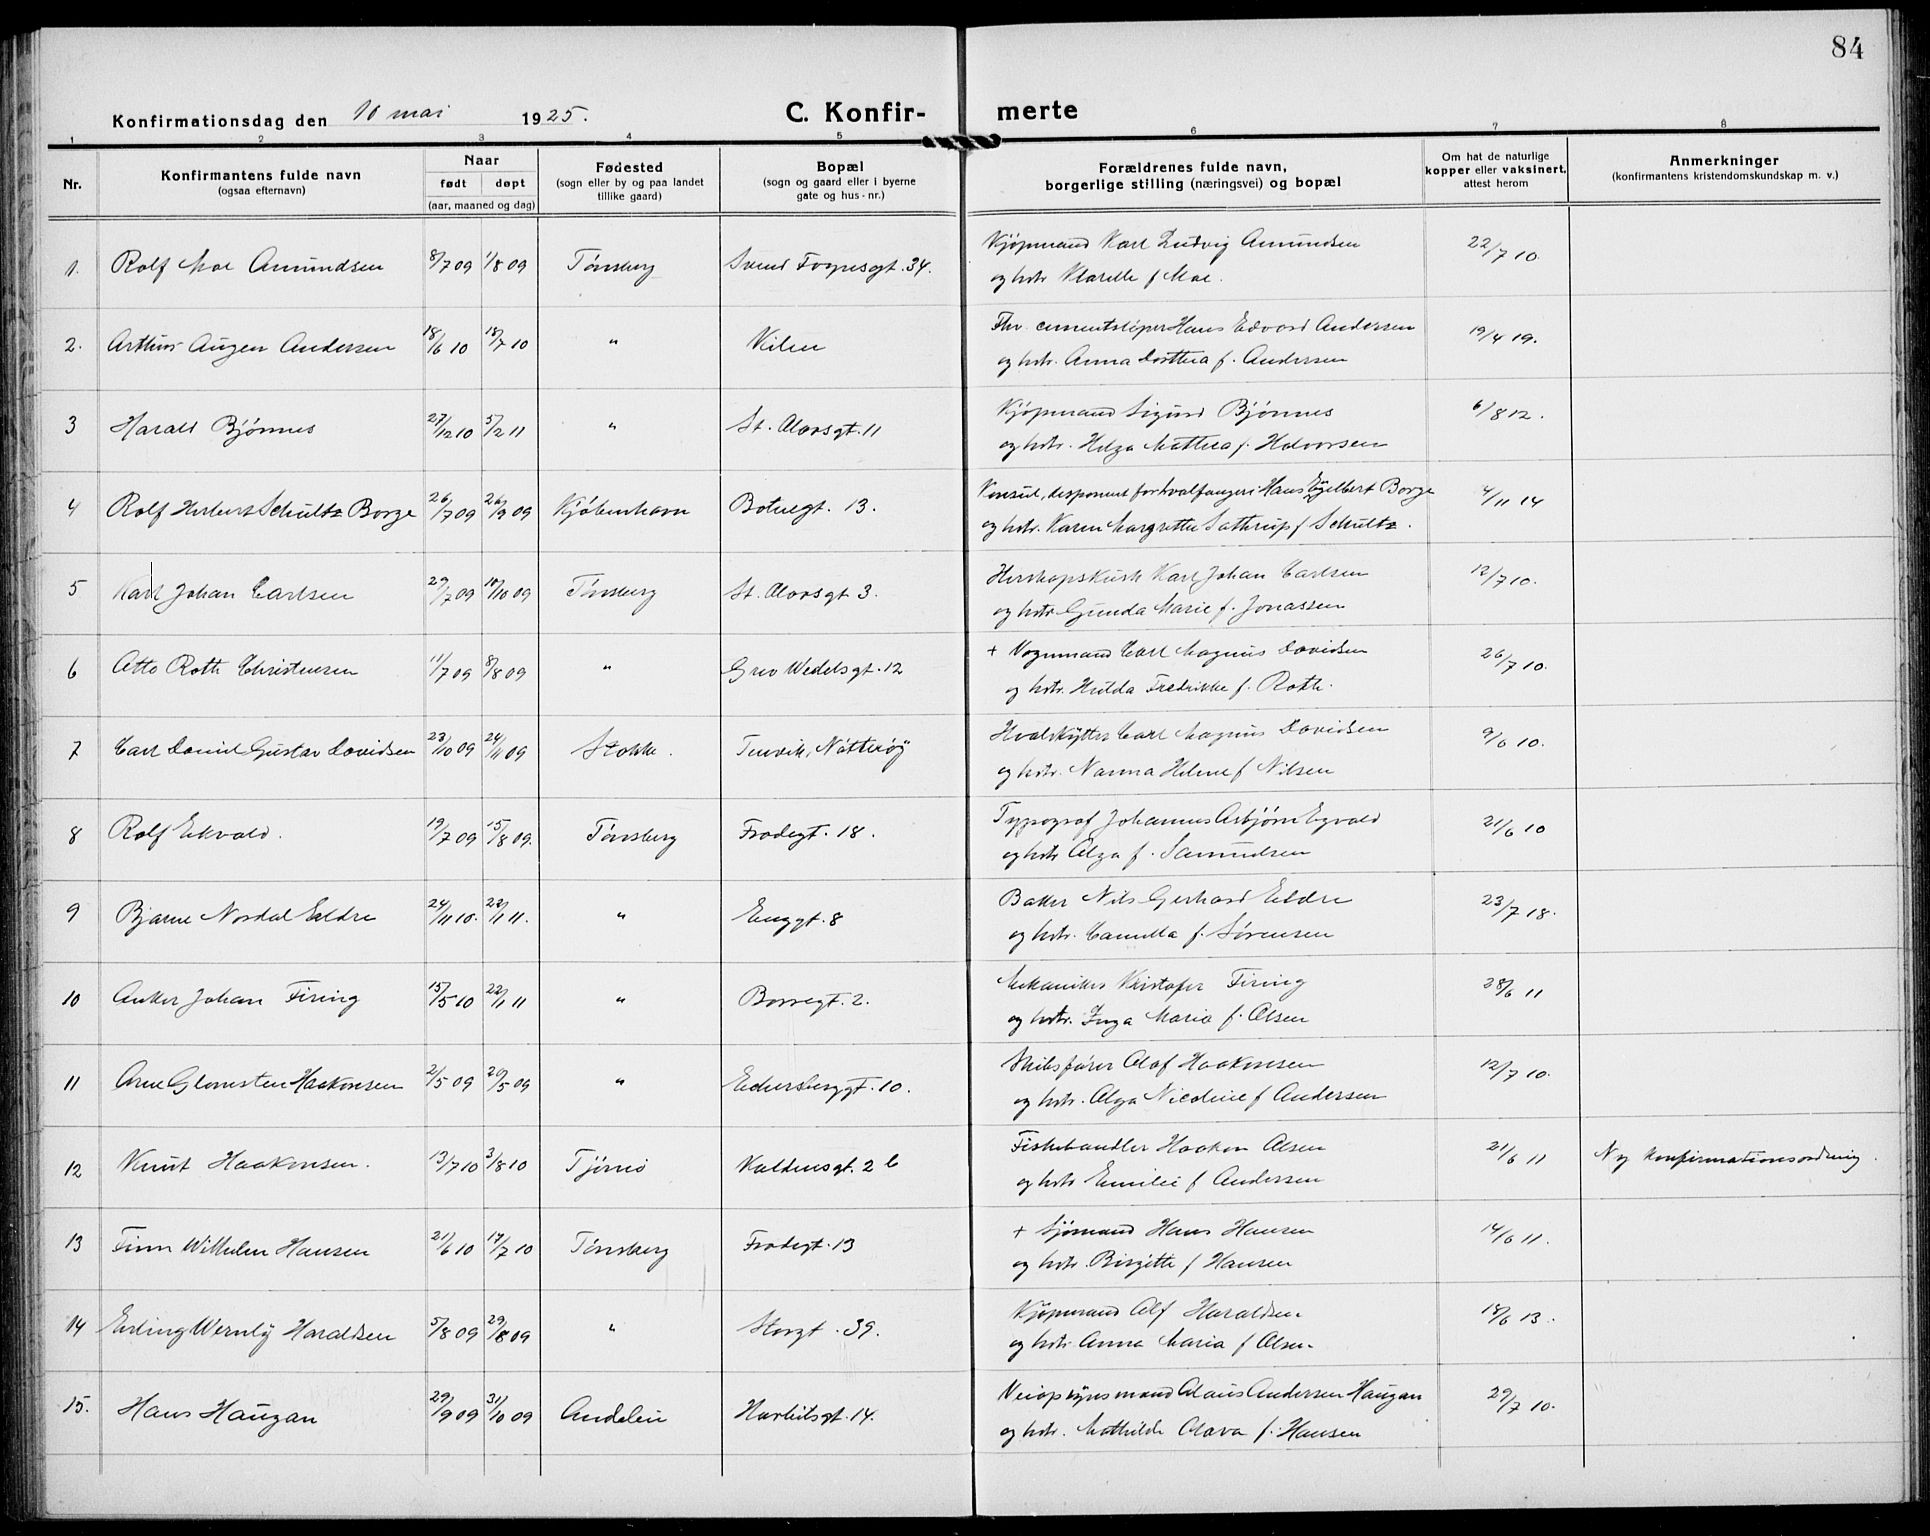 84
Konfirmationsdag den 10 mai 1925.
C. Konfir-
merte
1 2 3 4 5 6 7 8
Nr.
Konfirmantens fulde navn
(ogsaa efternavn)
Naar
født døpt
(aar, maaned og dag)
Fødested
(sogn eller by og paa landet
tillike gaard)
Bopæl
(sogn og gaard eller i byerne
gate og hus-nr.)
Forældrenes fulde navn,
borgerlige stilling (næringsvei) og bopæl
Om hat de naturlige
kopper eller vaksinert,
attest herom
Anmerkninger
(konfirmantens kristendomskundskap m. v.)
1. Rolf Moe Amundsen 8/7 09 1/8 09 Tønsberg Svend Foynsgt. 34.
Kjøpmand Karl Ludvig Amundsen 22/7 10.
og hstr. f Moe.
2. Arthur Andersen 18/6 10 18/7 10 " Kilen
Fhv. cementstøper Hans Edvard Andersen 19/4 19.
og hstr. Anna Dorthea f. Andersen
3 Harald Bjønnes 27/12 10 5/2 11 " St. Olavsgt. 11
Kjøpmand Sigurd Bjønnes 6/8 12.
og hstr. Helga Mathea f. Halvorsen
4 Rolf Herbert Schultz Borge 26/7 09 26/9 09 Kjøbenhavn 13.
Konsul, disponent for hvalfangeri Hans Borge 4/11 14
og hstr. Karen Margrethe f Schultz.
5 Karl Johan Carlsen 29/7 09 10/10 09 Tønsberg St. Olavsgt 3.
Herskapskusk Karl Johan Carlsen 12/7 10.
og hstr. Gunda Marie f. Jonassen
6 Otto Roth Christensen 11/7 09 8/8 09 " Grev Wedelsgt. 12
+ Vognmand Carl Magnus Davidsen 26/7 10.
og hstr. Hulda Fredrikke f. Roth.
7 Carl Daniel Gustav Davidsen 23/10 09 24/11 09 Stokke. Tenvik, Nøtterøy
Hvalskytter Carl Magnus Davidsen 9/6 10.
og hstr. Nanna Helene f Nilsen
8 Rolf Ekvald. 19/7 09 15/8 09. Tønsberg Frodegt. 18.
Typograf Johannes Asbjørn Egvald 21/6 10
og hstr Olga f. Samuelsen
9 Bjarne Nordal Eldre 24/11 10. 22/1 11. " Enggt. 8
Baker Nils Gerhard Eldre 23/7 18.
og hstr. Camilla f. Sørensen
10 Anker Johan Firing 15/5 10 22/1 11 " Borregt. 2.
Mekaniker Kristofer Firing 28/6 11
og hstr. Inga Maria f. Olsen
11 Arne Glomsten Haakonsen 2/5 09 20/5 09 " 10.
Skibsfører Olaf Haakonsen 12/7 10.
og hstr. Olga Nicoline f Andersen
12 Knut Haakonsen. 13/7 10 3/8 10 Tjømø Kaldnesgt. 2 b
Fiskehandler Haakon Olsen 21/6 11 Ny konfirmationsordning.
og hstr Emilie f Andersen
13 Finn Wilhelm Hansen 21/6 10 17/7 10 Tønsberg Frodegt. 13
+ Sjømand Hans Hansen 14/6 11.
og hstr. Birgitte f Hansen
14 Erling Wernly Haraldsen 5/8 09 29/8 09 " Storgt. 39.
Kjøpmand Alf Haraldsen 18/6 13.
og hstr. Anna Maria f Olsen
15. Hans Haugan 29/9 09 31/10 09 14.
Veiopsynsmand Olaus Andersen Haugan 29/7 10.
og hstr. Mathilde Olava f. Hansen